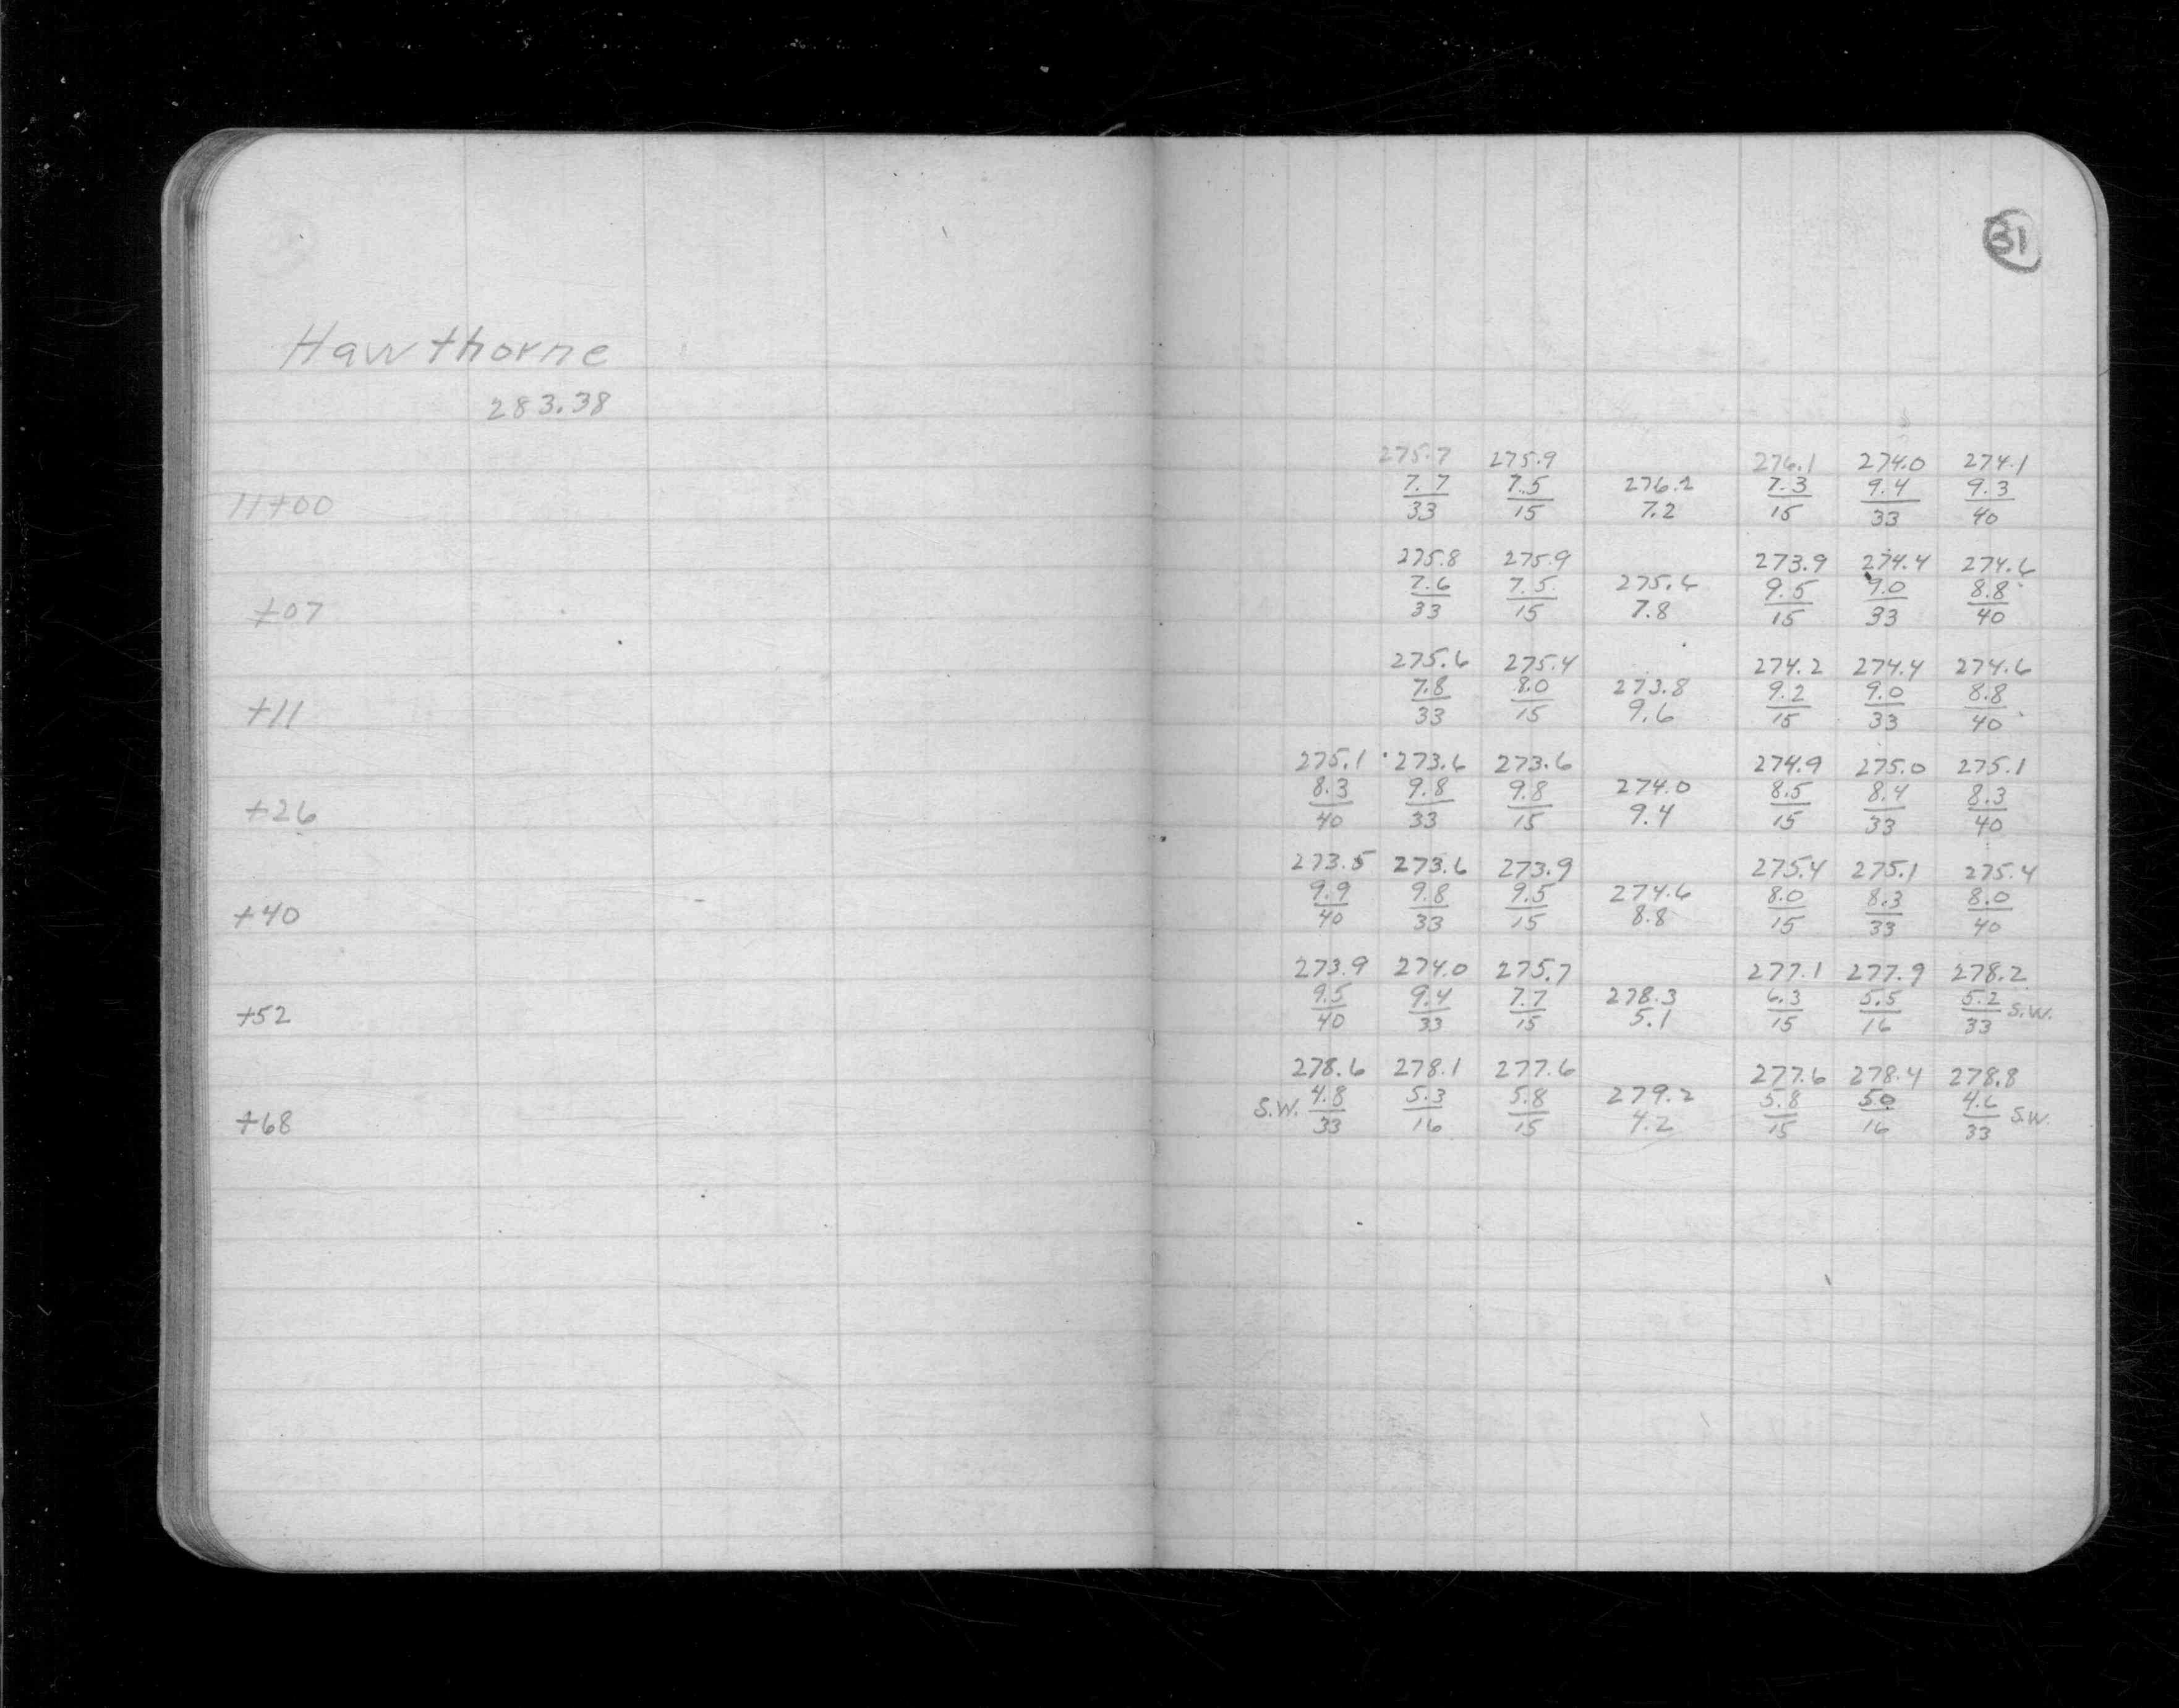 31
Hawthorne
283.38
275.7 275.9 276.1 274.0 274.1
11+00 7.7 7.5 276.2 7.3 9.4 9.3
33 15 7.2 15 33 40
275.8 275.9 273.9 274.4 274.6
+07 7.6 7.5 275.6 9.5 9.0 8.8
33 15 7.8 15 33 40
275.6 275.4 274.2 274.4 274.6
+11 7.8 8.0 273.8 9.2 9.0 8.8
33 15 9.6 15 33 40
275.1 273.6 273.6 274.9 275.0 275.1
+26 8.3 9.8 9.8 274.0 8.5 8.4 8.3
40 33 15 9.4 15 33 40
273.5 273.6 273.9 275.4 275.1 275.4
+40 9.9 9.8 9.5 274.6 8.0 8.3 8.0
40 33 15 8.8 15 33 40
273.9 274.0 275.7 277.1 277.9 278.2
+52 9.5 9.4 7.7 278.3 6.3 5.5 5.2 S.W.
40 33 15 5.1 15 16 33
278.6 278.1 277.6 277.6 278.4 278.8
+68 S.W. 4.8 5.3 5.8 279.2 5.8 5.0 4.6 S.W.
33 16 15 4.2 15 16 33